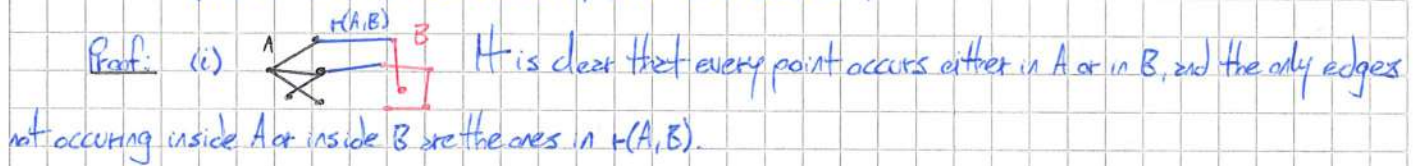 r(A,B)
Proof: (i) A B It is clear that every point occurs either in A or in B, and the only edges
not occuring inside A or inside B are the ones in r(A,B).